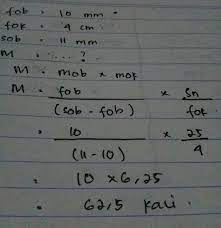 fob = 10 mm
fok = 4 cm
sob = 11 mm
M = .... ?
M = mob x mok
M = fob x Sn
(sob - fob) fok
= 10 x 25
(11 - 10) 4
= 10 x 6,25
= 62,5 kali